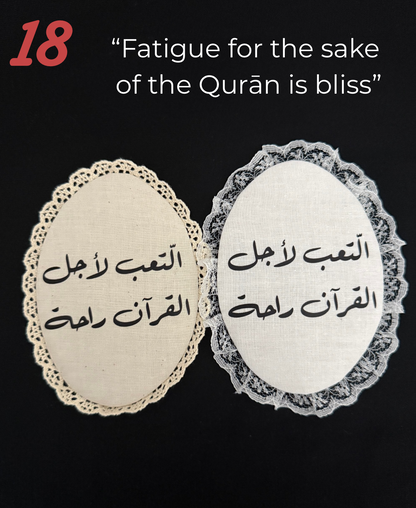 18
“Fatigue for the sake
of the Qurān is bliss”
التّعب لأجل
القرآن راحة
التّعب لأجل
القرآن راحة